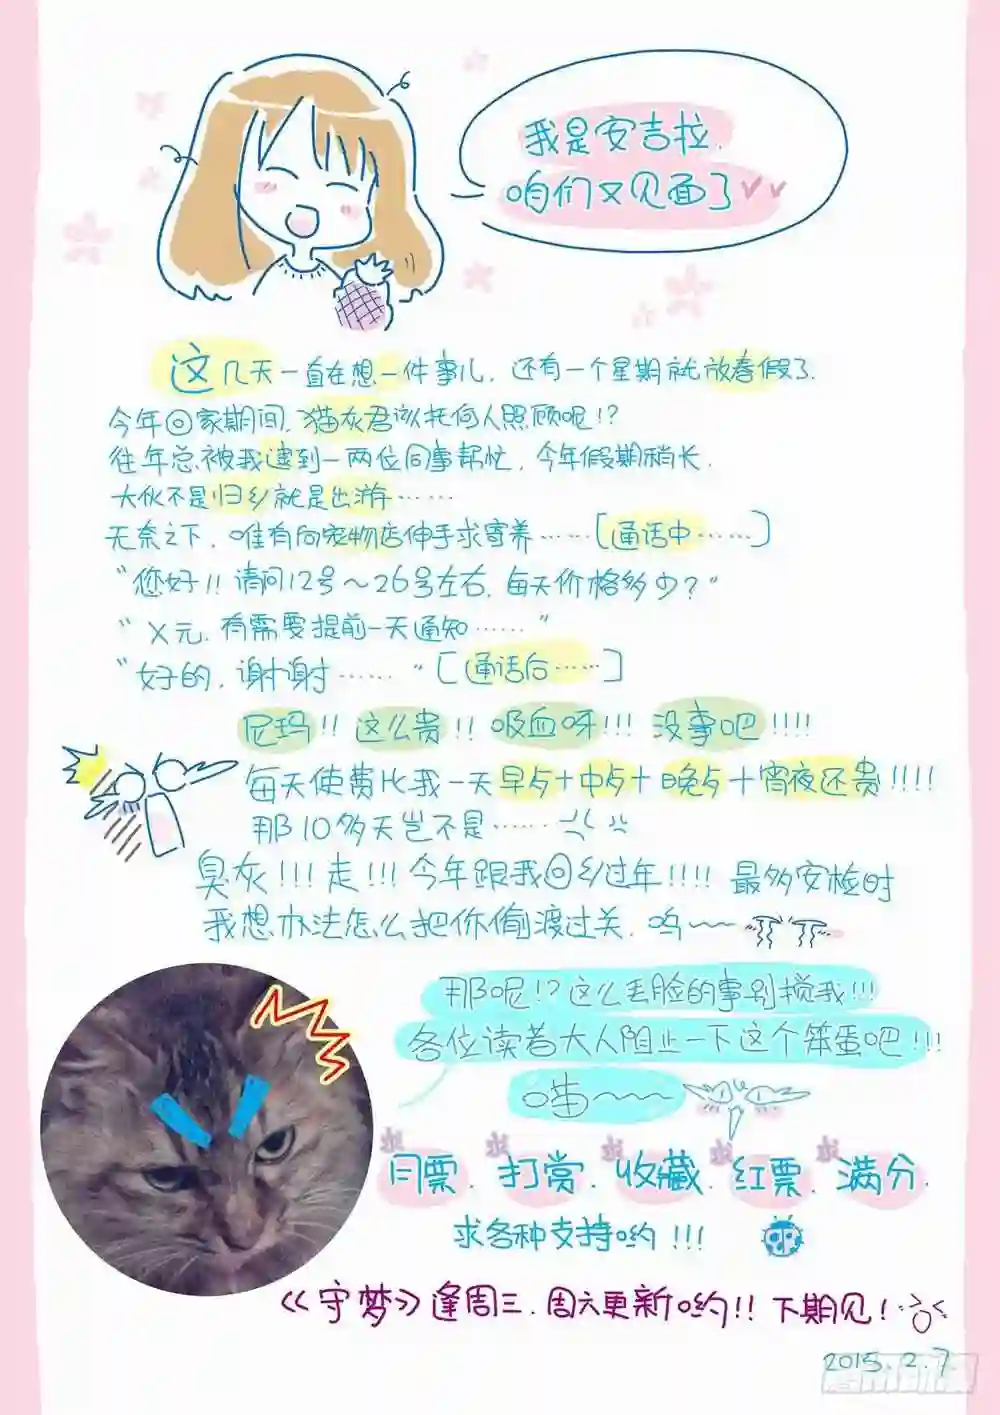 我是安吉拉.
咱们又见面了
这几天一直在想一件事儿,还有一个星期就放春假了.
今年回家期间,猫灰君该托何人照顾呢!?
往年总被我逮到一两位同事帮忙,今年假期稍长,
大伙不是归乡就是出游……
无奈之下,唯有向宠物店伸手求寄养……[通话中……]
“您好!!请问12号~26号左右,每天价格多少?”
“X元,有需要提前一天通知……”
“好的,谢谢……”[通话后……]
尼玛!!这么贵!!吸血呀!!!没事吧!!!!
每天使费比我一天早歺+中歺+晚歺+宵夜还贵!!!!
那10多天岂不是……
臭灰!!!走!!!今年跟我回乡过年!!!!最多安检时
我想办法怎么把你偷渡过关.呜~~
那呢!?这么丢脸的事别搅我!!!
各位读者大人阻止一下这个笨蛋吧!!!
喵~~~~
求 求 求 求 求
月票.打赏.收藏.红票.满分.
求各种支持哟!!!
《守梦》逢周三.周六更新哟!!下期见!
2015.2.7